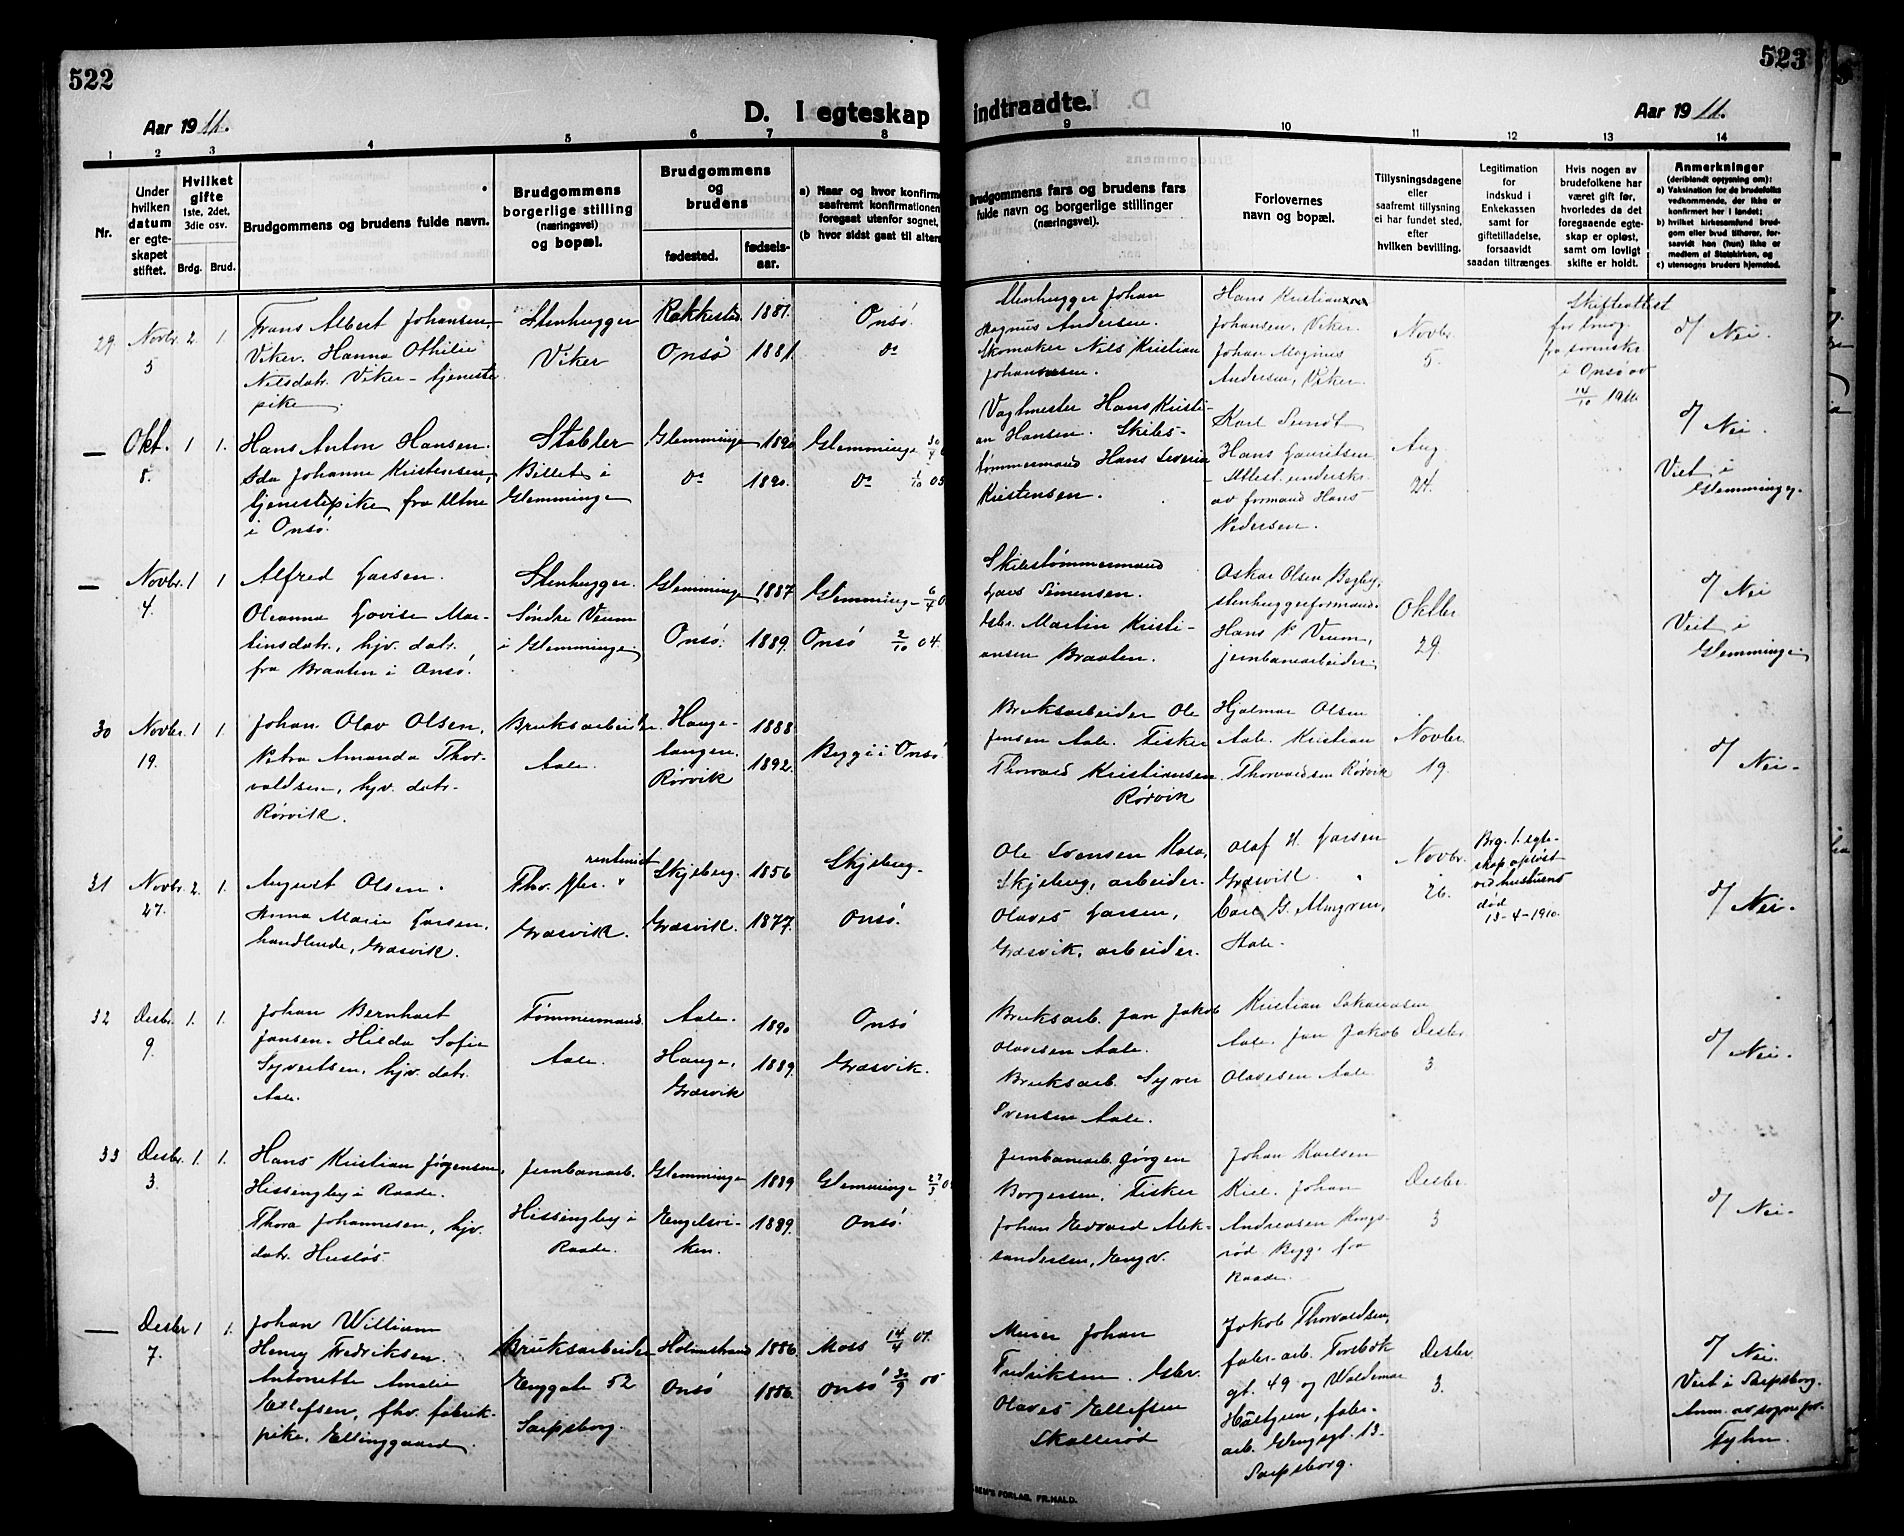 522
523
Aar 1911.
D. I egteskap indtraadte.
Aar 1911.
1 2 3 4 5 6 7 8 9 10 11 12 13 14
Nr.
Under hvilken datum er egteskapet stiftet.
Hvilket gifte 1ste, 2det, 3die osv.
Brdg. Brud.
Brudgommens og brudens fulde navn.
Brudgommens borgerlige stilling (næringsvei) og bopæl.
Brudgommens og brudens
fødested.
fødselsaar.
a) Naar og hvor konfirm
saafremt konfirmationen
foregaat utenfor sognet,
(b hvor sidst gaat til alters
Brudgommens fars og brudens fars fulde navn og borgerlige stillinger (næringsvei).
Forlovernes navn og bopæl.
Tillysningsdagene eller saafremt tillysning ei har fundet sted, efter hvilken bevilling.
Legitimation for indskud i Enkekassen samt for giftetilladelse, forsaavidt saadan tiltrænges
Hvis nogen av brudefolkene har været gift før, hvorledes da det foregaaende egteskap er opløst, samt om lovligt skifte er holdt.
Anmerkninger (deriblandt oplysning om): a) Vaksination for de brudefolks vedkommende, der ikke er konfirmert her i landet; b) hvilket kirkesamfund brudgom eller brud tilhører, forsaavidt han (hun) ikke er medlem af Statskirken, og c) utensogns bruders hjemsted.
29. Novbr. 5 2. 1.
Frans Albert Johansen,
Viker. Hanna Othilie
Nilsdatr. Viker - tjeneste
pike.
Stenhugger
Viker
Rakkestad 1881.
Onsø 1881
Onsø.
do
Stenhugger Johan
Magnus Andersen.
Skomaker Nils Kristian
Johannesen.
Hans Kristian
Johansen, Viker.
Johan Magnus
Andersen, Viker.
Novbr. 5.
Skifteattest
fra
i Onsø av
14/10 1911.
d/ Nei.
— Okt. 8. 1 1.
Hans Anton Hansen.
Ida Johanne Kristensen,
tjenestepike fra Utne
i Onsø.
Stabler
Billet i
Glemminge
Glemminge 1890
do 1890.
Glemminge 30/4
do 1/10 05
Vagtmester Hans Kristi-
an Hansen. Skibs-
tømmermand Hans Severin
Kristensen.
Karl Sundt
Hans Lauritsen
- Attest underskr.
av formand Hans
Pedersen.
Aug. 24.
d/ Nei.
Viet i
Glemminge.
— Novbr. 4. 1 1
Alfred Larsen.
Oleanna Lovise Mar-
tinsdatr., hjv. datr.
fra Braaten i Onsø.
Stenhugger.
Søndre Veum
i Glemminge
Glemminge 1887
Onsø. 1889.
Glemminge 6/4
Onsø 2/10 04.
Skibstømmermand
Lars Simensen.
Gbr. Martin Kristi-
ansen Braaten.
Oskar Olsen Begby,
stenhuggerformand.
Hans P. Veum,
jernbanearbeider.
Oktbr 29.
d/ Nei
Viet i
Glemminge
30 Novbr. 19. 1. 1.
Johan Olav Olsen,
Petra Amanda Thor-
valdsen, hjv. datr.
Rørvik.
Bruksarbeider.
Aale.
Hauge-
tangen. 1888
Rørvik 1892.
Bygg i Onsø
Bruksarbeider Ole
Jensen Aale. Fisker
Thorvald Kristiansen
Rørvik
Hjalmar Olsen
Aale. Kristian
Thorvaldsen Rørvik
Novbr. 19.
d/ Nei.
31 Novbr. 27. 2. 1.
August Olsen.
Anna Marie Larsen,
handlende, Græsvik.
rentenist
Græsvik.
Skjeberg. 1856
Græsvik. 1877.
Skjeberg.
Onsø.
Ole Svensen
Skjeberg, arbeider.
Olaves Larsen,
Græsvik, arbeider.
Olaf H. Larsen
Græsvik.
Carl G. Almgren,
Aale.
Novbr. 26.
Brg. 1. egte-
skap opløst
ved hustruens
død
13-4-1910.
d/ Nei.
32 Desbr. 9. 1. 1.
Johan Bernhart
Jansen. Hilda Sofie
Syvertsen, hjv. datr.
Aale.
Tømmermand.
Aale.
Aale. 1890
Hauge, 1889.
Græsvik
Onsø
Græsvik.
Bruksarb. Jan Jakob
Olavesen Aale.
Bruksarb. Syver
Svensen Aale.
Kristian Johansen
Aale. Jan Jakob
Olavesen Aale.
Desbr. 3
d/ Nei.
33 Desbr. 3. 1. 1.
Hans Kristian Jørgensen,
Hissingby i Raade.
Thora Johannesen, hjv.
datr. Husløs.
Jernbanearb.
Hissingby i
Raade.
Glemminge 1889
Engelsvi-
ken. 1889.
Glemminge 27/3
Onsø.
Jernbanearb. Jørgen
Borgersen. Fisker
Johan Edvard Alek-
sandersen, Engv.
Johan Karlsen
Kiel. Johan
Andreasen Kongs-
rød Bygg. fra
Raade.
Desbr. 3
d/ Nei.
— Desbr 7. 1 1.
Johan William
Henry Fredriksen.
Antonette Amalie
Ellefsen, fhv. fabrik-
pike, Ellinggaard.
Bruksarbeider
Enggate 52
Sarpsborg.
Holmestrand 1886
Onsø 1886.
Moss 14/4 01.
Onsø 30/9 00
Murer Johan
Fredriksen. Gbr.
Olaves Ellefsen
Skallerød
Jakob Thorvaldsen,
fabr. arb. Torsbæk
gt. 49 og Waldemar
Hultgren, fabr.
arb. Glengsgt. 13.
Sarpsborg.
Desbr. 3.
d/ Nei.
Viet i Sarpsborg.
Anm. av sognepr.
Fyhn.
SEN'S FORLAG, FR.HALD.